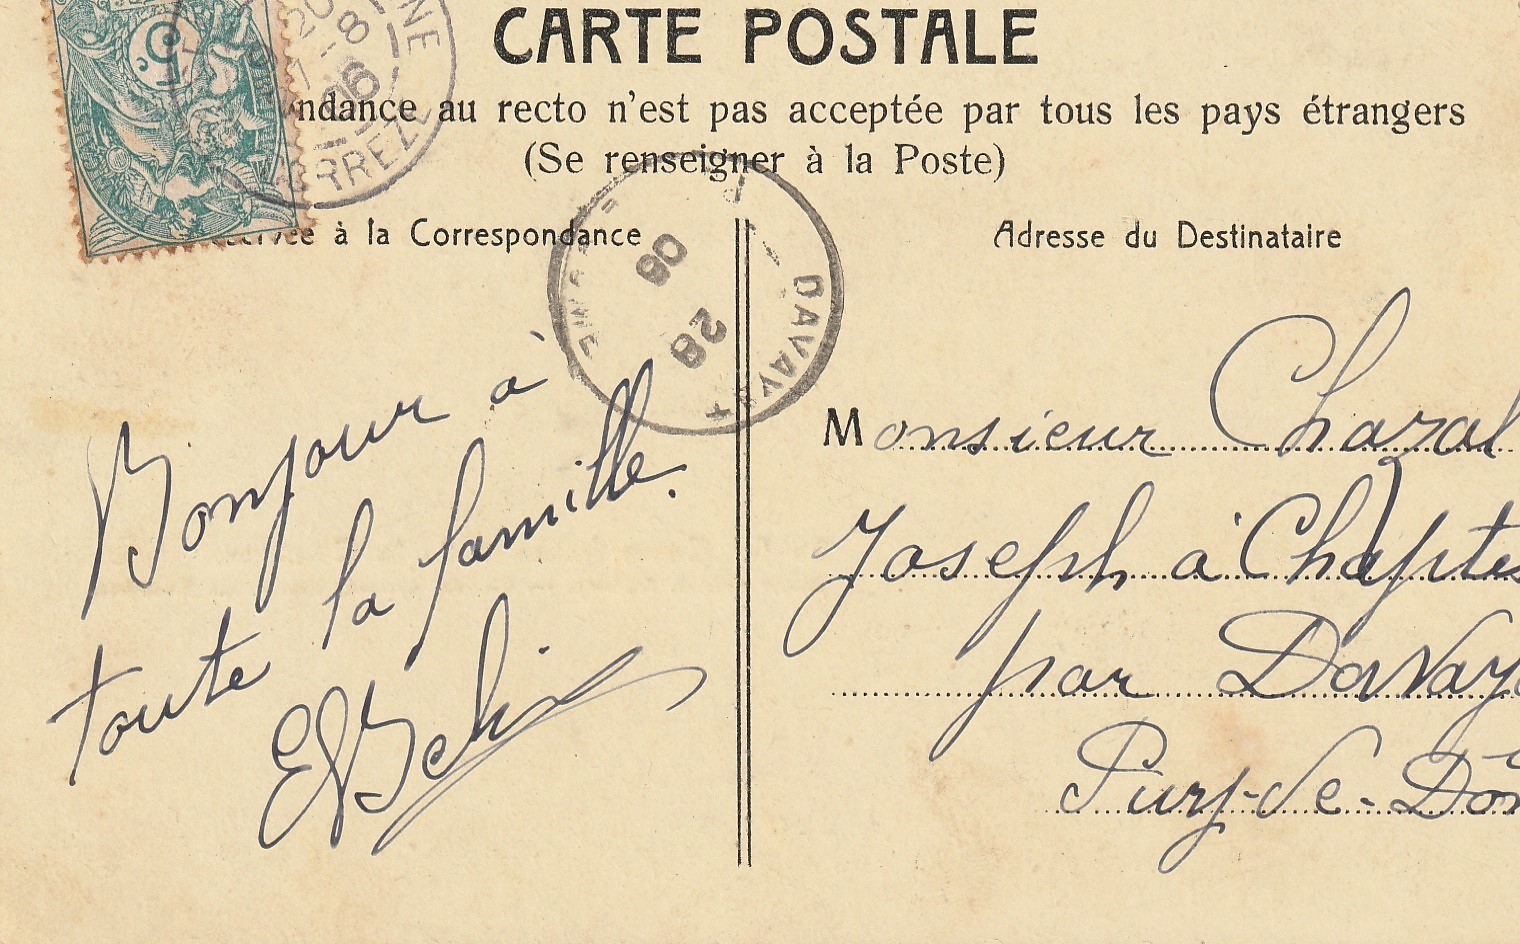 CARTE POSTALE
ndance au recto n'est pas acceptée par tous les pays étrangers
(Se renseigner à la Poste)
à la Correspondance
Adresse du Destinataire
5c
20
1-8
06
NE
RREZE
28
06
DAVAY
DOME
Bonjour à
toute la famille.
Monsieur Chazal
Joseph à Chaptes
par Davay
Puy-de-Dôm